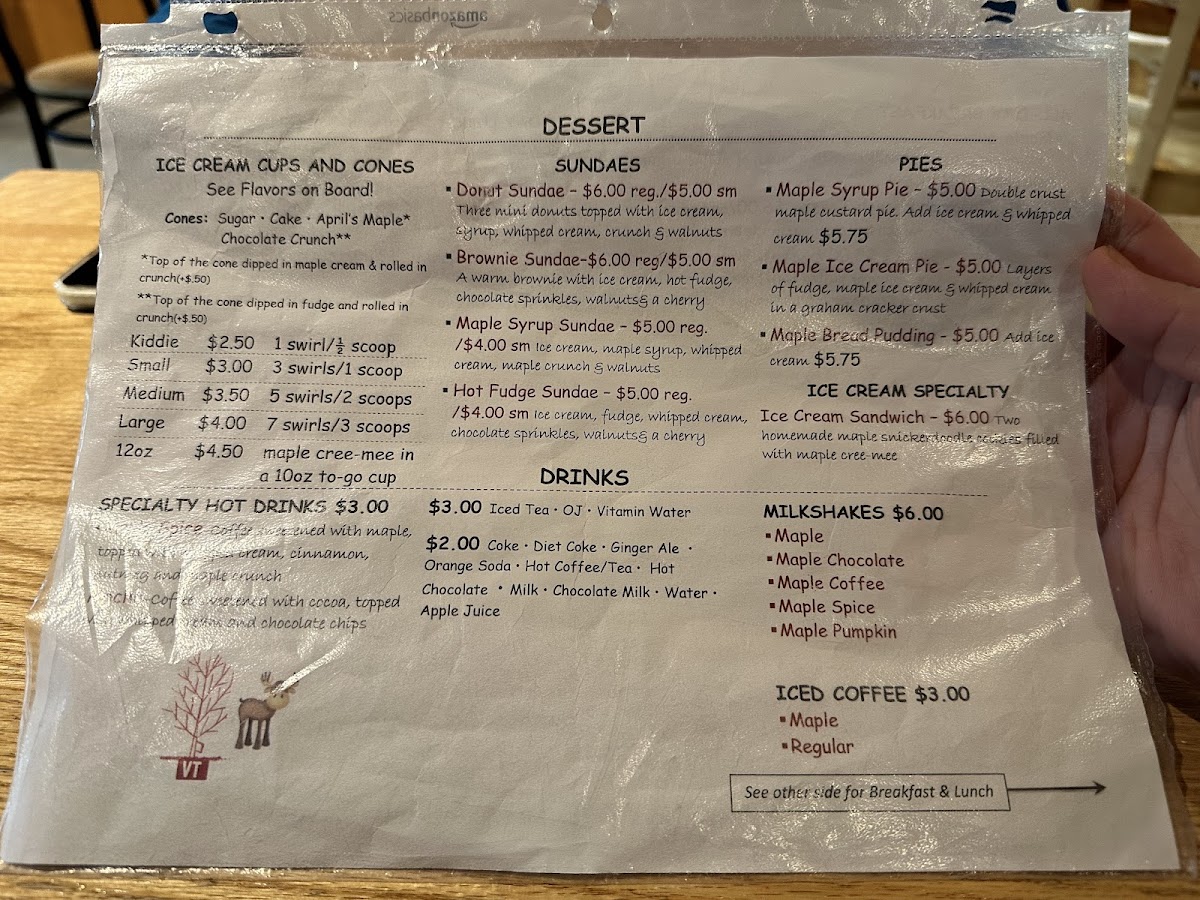 amazonbasics
DESSERT
ICE CREAM CUPS AND CONES
See Flavors on Board!
Cones: Sugar • Cake • April's Maple*
Chocolate Crunch**
*Top of the cone dipped in maple cream & rolled in
crunch(+$.50)
**Top of the cone dipped in fudge and rolled in
crunch(+$.50)
Kiddie $2.50 1 swirl/½ scoop
Small $3.00 3 swirls/1 scoop
Medium $3.50 5 swirls/2 scoops
Large $4.00 7 swirls/3 scoops
12oz $4.50 maple cree-mee in
a 10oz to-go cup
SUNDAES
▪ Donut Sundae – $6.00 reg./$5.00 sm
Three mini donuts topped with ice cream,
syrup, whipped cream, crunch & walnuts
▪ Brownie Sundae–$6.00 reg/$5.00 sm
A warm brownie with ice cream, hot fudge,
chocolate sprinkles, walnuts& a cherry
▪ Maple Syrup Sundae – $5.00 reg.
/$4.00 sm Ice cream, maple syrup, whipped
cream, maple crunch & walnuts
▪ Hot Fudge Sundae – $5.00 reg.
/$4.00 sm Ice cream, fudge, whipped cream,
chocolate sprinkles, walnuts& a cherry
PIES
▪ Maple Syrup Pie - $5.00 Double crust
maple custard pie. Add ice cream & whipped
cream $5.75
▪ Maple Ice Cream Pie - $5.00 Layers
of fudge, maple ice cream & whipped cream
in a graham cracker crust
▪ Maple Bread Pudding - $5.00 Add ice
cream $5.75
ICE CREAM SPECIALTY
Ice Cream Sandwich – $6.00 Two
homemade maple snickerdoodle cookies filled
with maple cree-mee
DRINKS
SPECIALTY HOT DRINKS $3.00
Spice Coffee sweetened with maple,
cream, cinnamon,
and maple crunch
Coffee sweetened with cocoa, topped
whipped cream and chocolate chips
$3.00 Iced Tea • OJ • Vitamin Water
$2.00 Coke • Diet Coke • Ginger Ale •
Orange Soda • Hot Coffee/Tea • Hot
Chocolate • Milk • Chocolate Milk • Water •
Apple Juice
MILKSHAKES $6.00
▪ Maple
▪ Maple Chocolate
▪ Maple Coffee
▪ Maple Spice
▪ Maple Pumpkin
ICED COFFEE $3.00
▪ Maple
▪ Regular
VT
See other side for Breakfast & Lunch